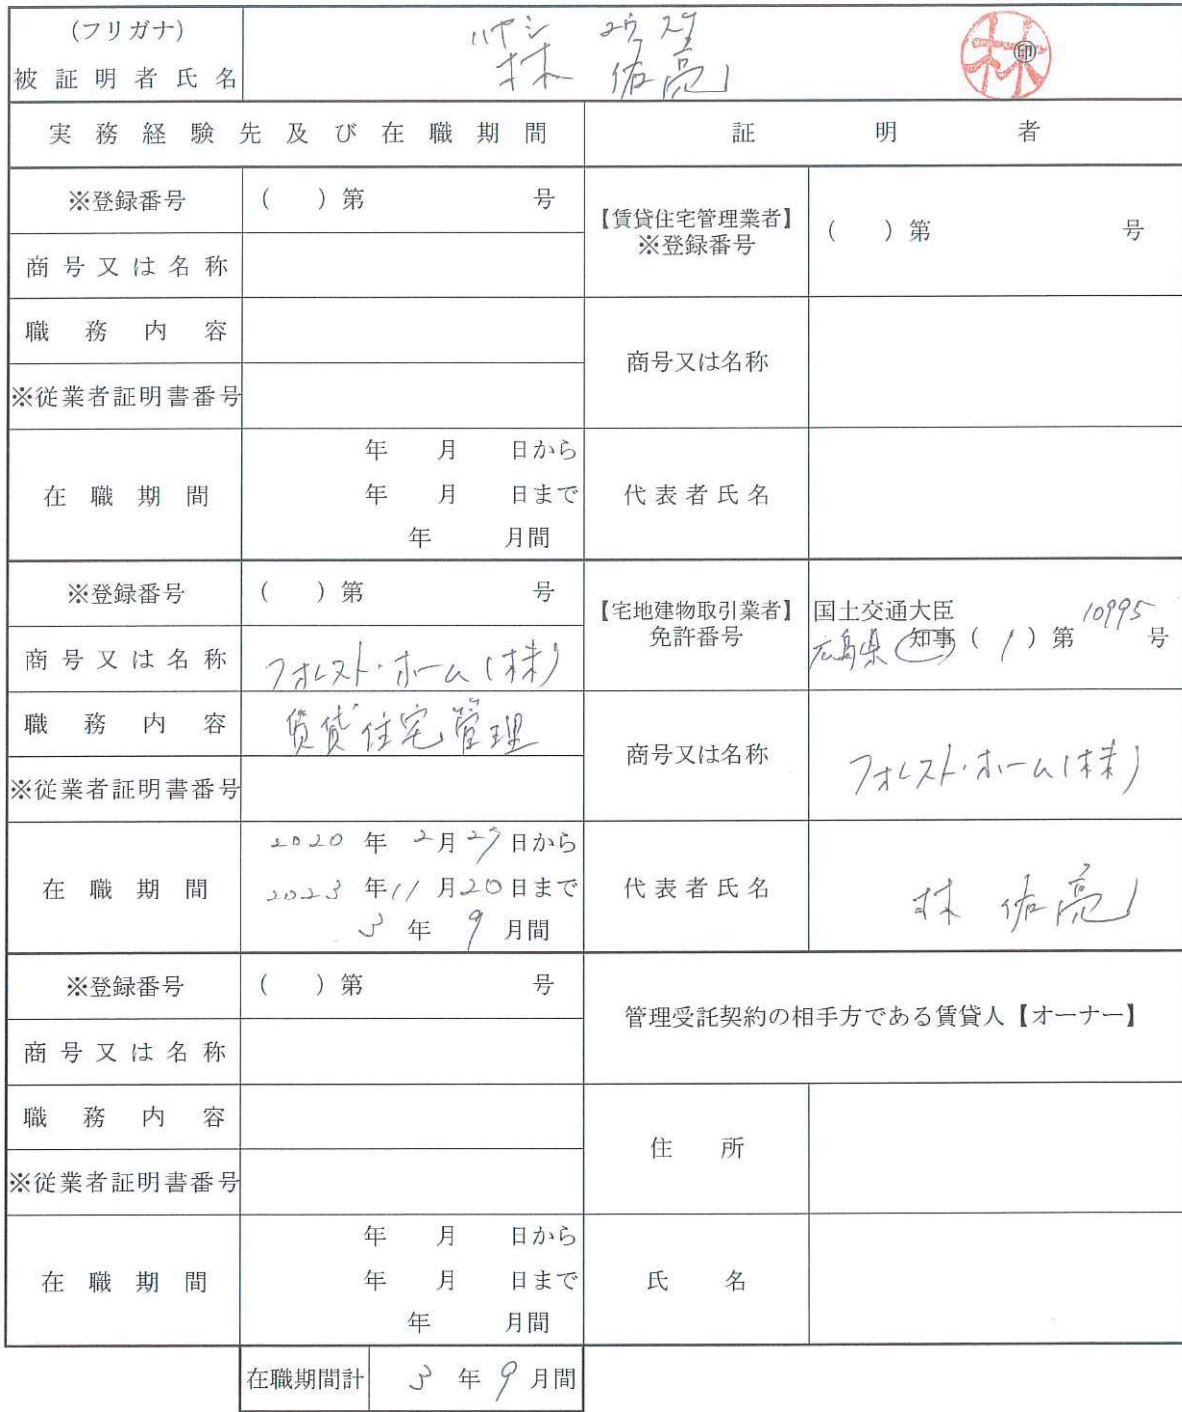 (フリガナ)
ハヤシ ユウスケ
被証明者氏名
林 佑亮
林
㊞
実務経験先及び在職期間
証明者
※登録番号
( )第 号
【賃貸住宅管理業者】
※登録番号
( )第 号
商号又は名称
職務内容
商号又は名称
※従業者証明書番号
在職期間
年 月 日から
年 月 日まで
年 月間
代表者氏名
※登録番号
( )第 号
【宅地建物取引業者】
免許番号
国土交通大臣
広島県 知事 ( 1 ) 第 10995 号
商号又は名称
フォレスト・ホーム(株)
職務内容
賃貸住宅管理
商号又は名称
フォレスト・ホーム(株)
※従業者証明書番号
在職期間
2020 年 2月 29 日から
2023 年 11 月 20 日まで
3 年 9 月間
代表者氏名
林 佑亮
※登録番号
( )第 号
管理受託契約の相手方である賃貸人【オーナー】
商号又は名称
職務内容
住所
※従業者証明書番号
在職期間
年 月 日から
年 月 日まで
年 月間
氏名
在職期間計
3 年 9 月間